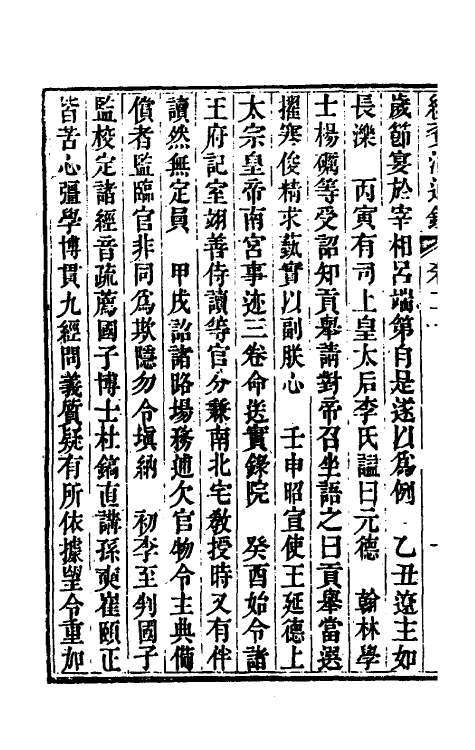 歲節宴於宰相呂端第自是遂以爲例　乙丑遼主如
長濼　丙寅有司上皇太后李氏諡曰元德　翰林學
士楊礪等受詔知貢舉請對帝召坐語之曰貢舉當選
擢寒俊精求藝實以副朕心　壬申昭宣使王延德上
太宗皇帝南宮事迹三卷命送實錄院　癸酉始令諸
王府記室翊善侍讀等官分兼南北宅敎授時又有伴
讀然無定員　甲戌詔諸路場務逋欠官物令主典備
償者監臨官非同爲欺隱勿令塡納　初李至判國子
監校定諸經音疏薦國子博士杜鎬直講孫奭崔頤正
皆苦心彊學博貫九經問義質疑有所依據望令重加